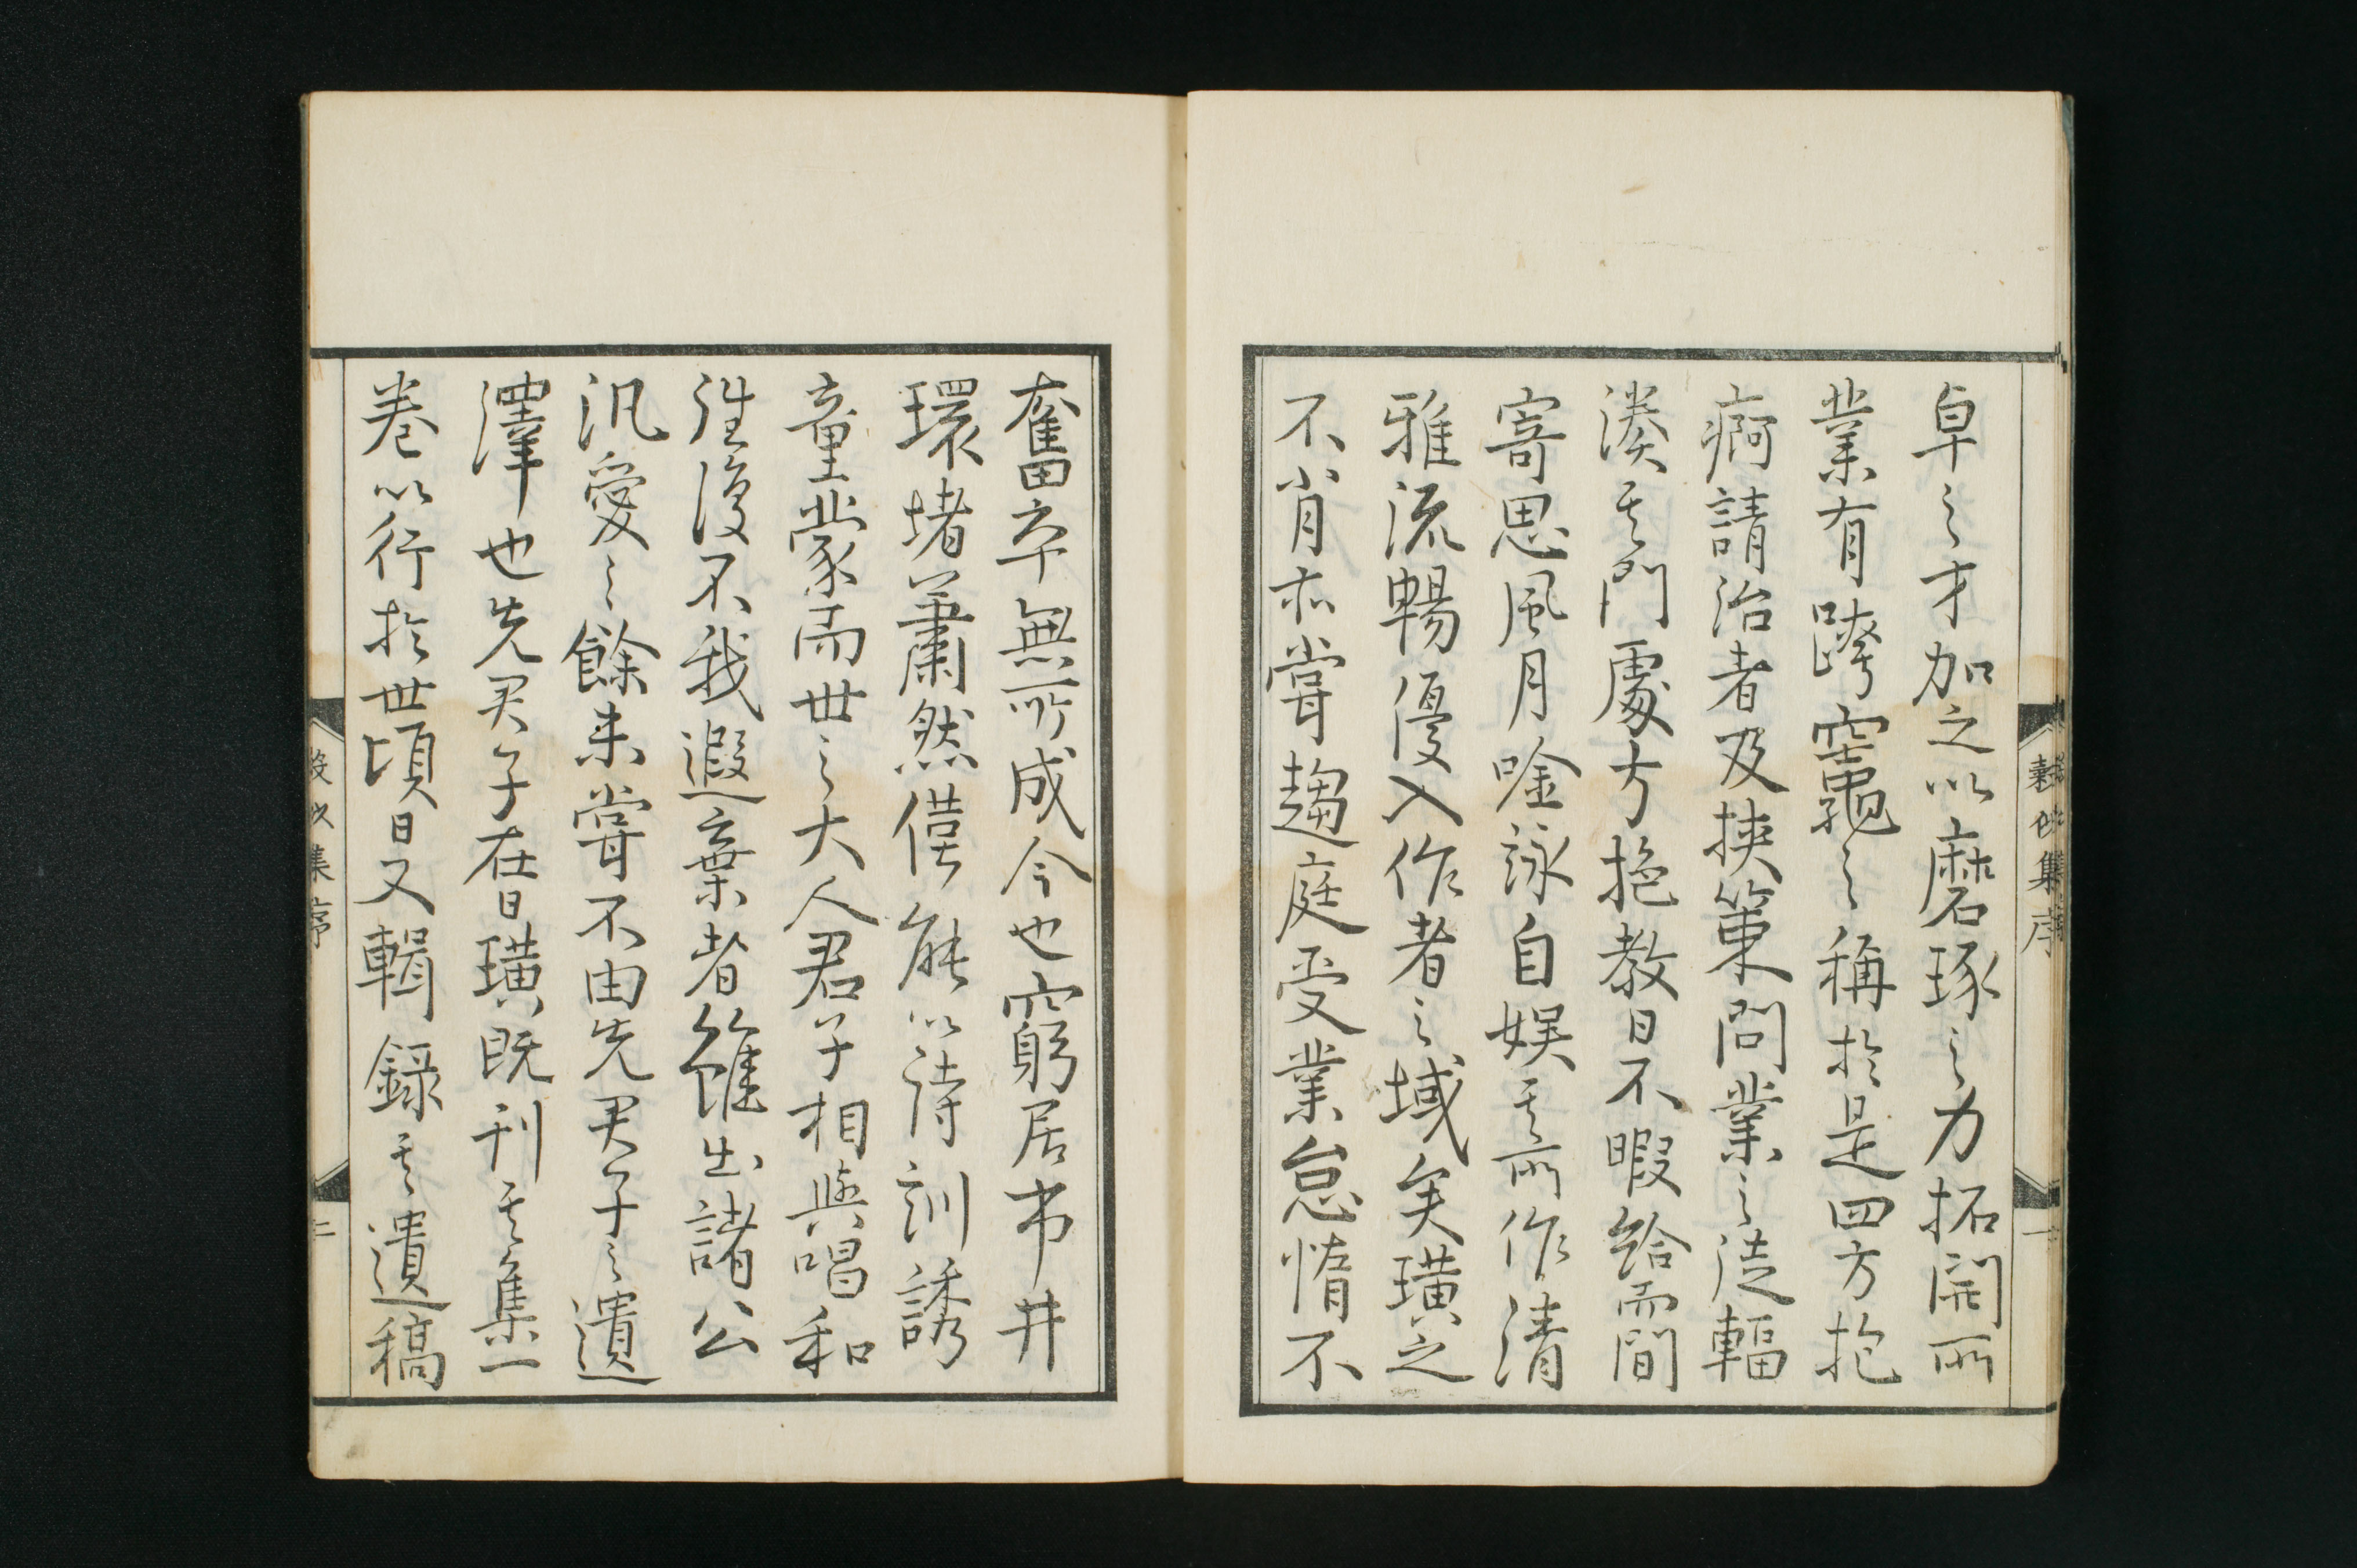 卓之才加之以磨琢之力拓開所
業有跨竈之稱於是四方抱
痾請治者及挾策問業之徒輻
湊其門處方挹教日不暇給而間
寄思風月唫詠自娯其所作清
雅流暢優入作者之域矣璜之
不肖亦嘗趨庭受業怠惰不
奮卒無所成今也窮居市井
環堵蕭然僅能以待訓誘
童蒙而世之大人君子相與唱和
往復不我遐棄者雖出諸公
汎愛之餘未嘗不由先君子之遺
澤也先君子在日璜既刊其集一
巻以行於世頃日又輯録其遺稿
集序
二
集序
一